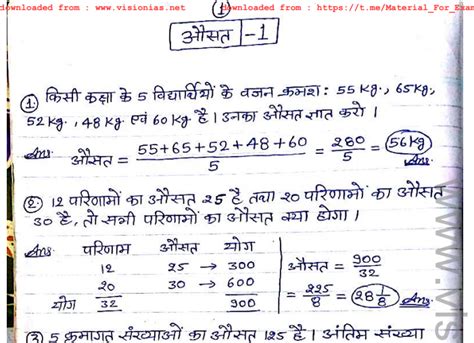 downloaded from : www.visionias.net
downloaded from : https://t.me/Material_For_Exam
1
औसत - 1
① किसी कक्षा के 5 विद्यार्थियों के वजन क्रमशः 55 Kg., 65 Kg,
52 Kg., 48 Kg. एवं 60 Kg. है। उनका औसत ज्ञात करो ।
Ans. औसत = 55+65+52+48+60 / 5 = 280 / 5 = 56 Kg
② 12 परिणामों का औसत 25 है तथा 20 परिणामों का औसत
30 है, तो सभी परिणामों का औसत क्या होगा ।
Ans. परिणाम औसत योग
12 25 → 300
20 30 → 600
योग 32 900
औसत = 900 / 32
= 225 / 8 = 28 1/8 Ans.
③ 5 क्रमागत संख्याओं का औसत 125 है। अंतिम संख्या
www.vis